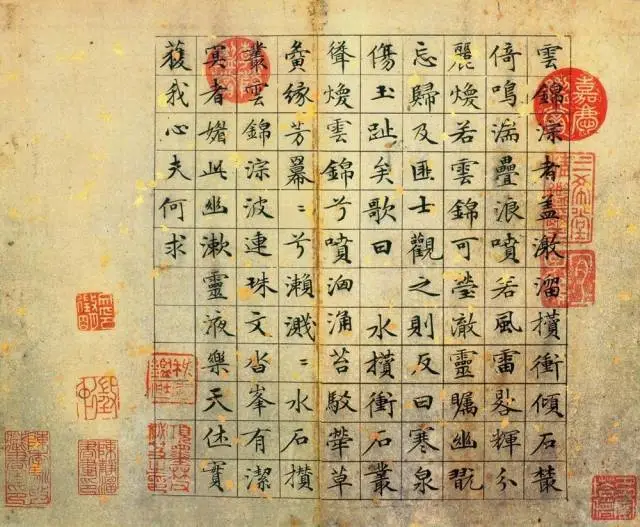 雲錦淙者盖激溜攢衝傾石叢
倚鳴湍疊浪噴若風雷晷輝分
麗煥若雲錦可瑩澈靈矚幽翫
忘歸及匪士觀之則反曰寒泉
傷玉趾矣歌曰 水攢衝石叢
聳煥雲錦兮噴洶涌苔駮犖草
夤緣芳冪〻兮瀨濺〻水石攢
叢雲錦淙波連珠文沓峯有潔
冥者媚此幽漱靈液樂天休實
獲我心夫何求
嘉慶
三希堂